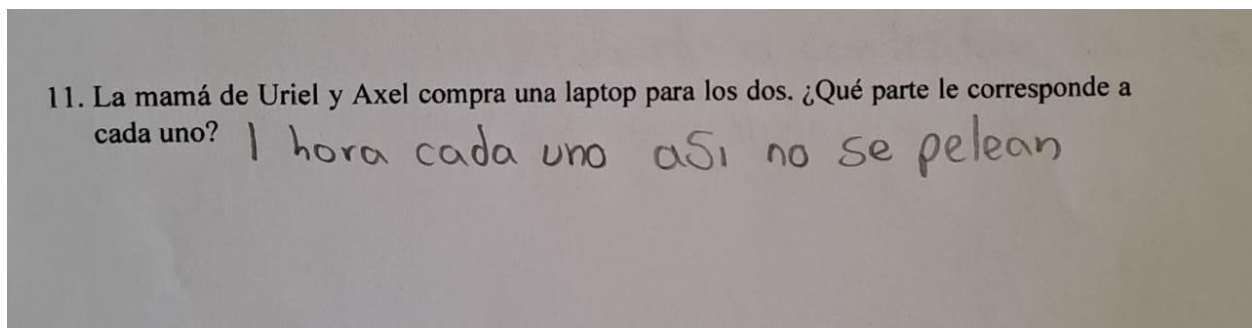 11. La mamá de Uriel y Axel compra una laptop para los dos. ¿Qué parte le corresponde a
cada uno? 1 hora cada uno aSi no se pelean